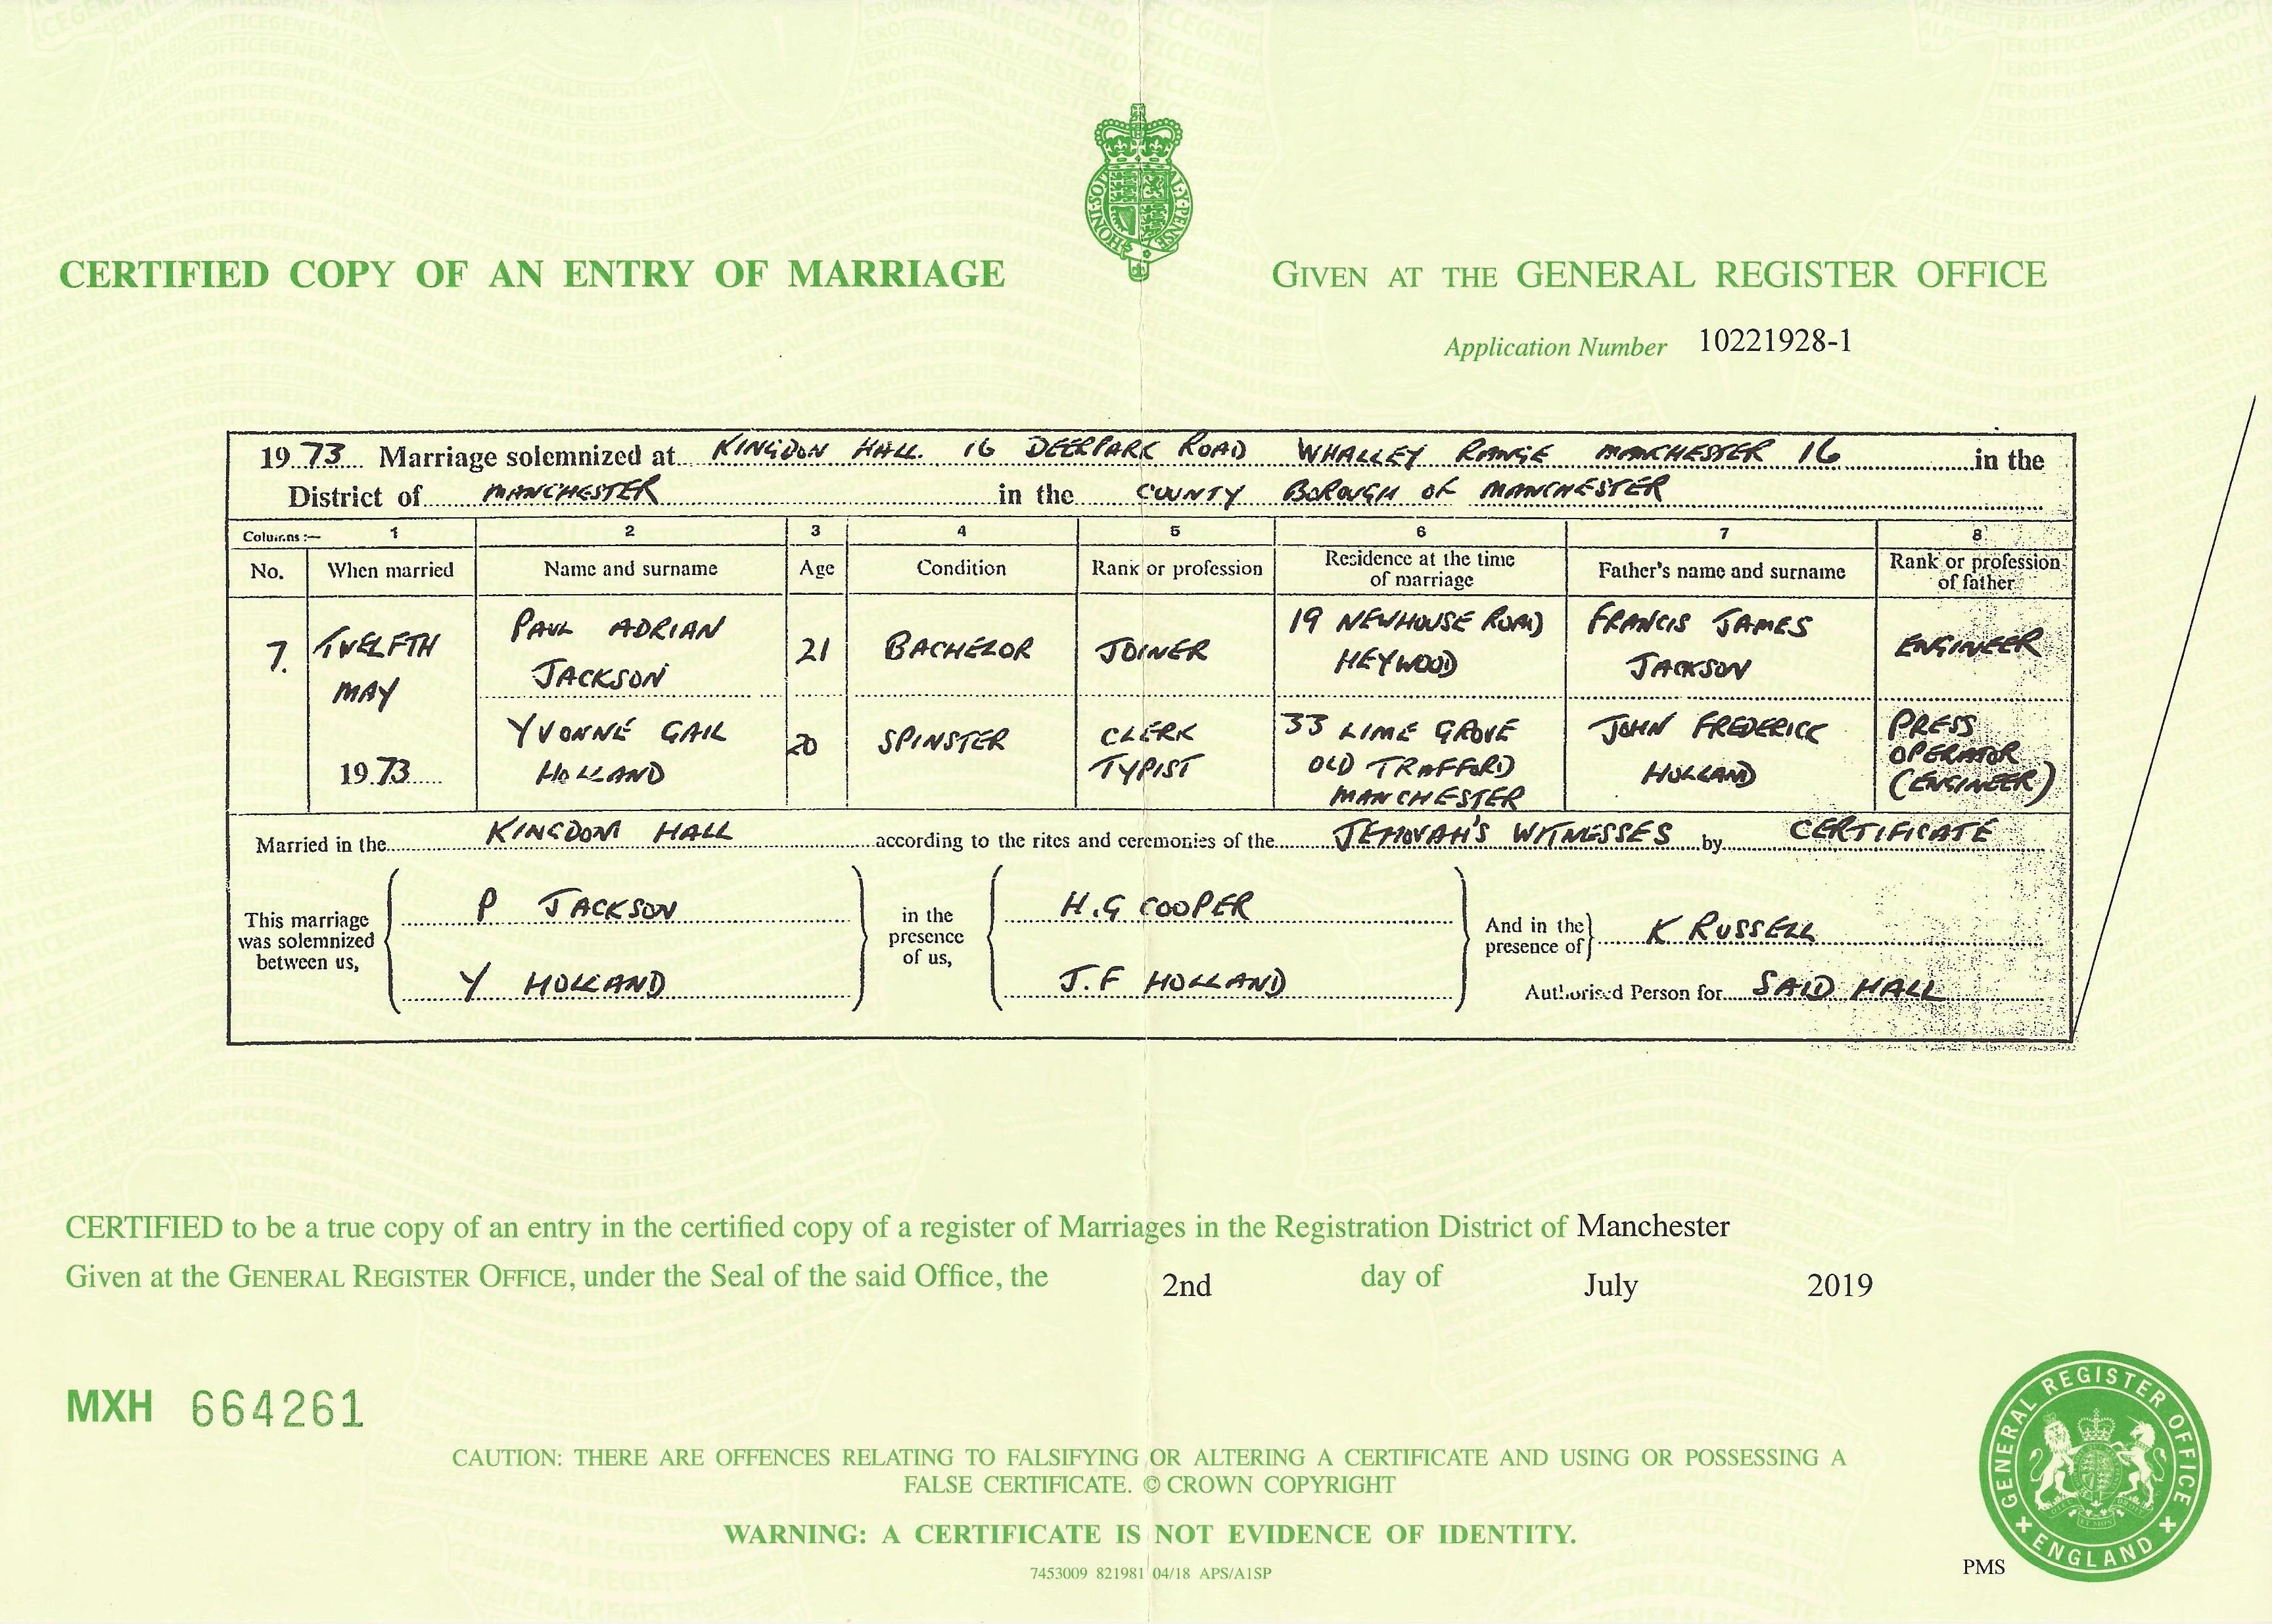 HONI·SOIT
AL·Y·PENSE
CERTIFIED COPY OF AN ENTRY OF MARRIAGE
GIVEN AT THE GENERAL REGISTER OFFICE
Application Number 10221928-1
1973 Marriage solemnized at KINGDON HALL. 16 DEERPARK ROAD WHALLEY RANGE MANCHESTER 16 in the
District of MANCHESTER in the COUNTY BOROUGH OF MANCHESTER
Columns:— 1 2 3 4 5 6 7 8
No. When married Name and surname Age Condition Rank or profession Residence at the time of marriage Father's name and surname Rank or profession of father
7. TWELFTH MAY 1973
PAUL ADRIAN JACKSON 21 BACHELOR JOINER 19 NEWHOUSE ROAD HEYWOOD FRANCIS JAMES JACKSON ENGINEER
YVONNE GAIL HOLLAND 20 SPINSTER CLERK TYPIST 33 LIME GROVE OLD TRAFFORD MANCHESTER JOHN FREDERICK HOLLAND PRESS OPERATOR (ENGINEER)
Married in the KINGDOM HALL according to the rites and ceremonies of the JEHOVAH'S WITNESSES by CERTIFICATE
This marriage was solemnized between us,
P JACKSON
Y HOLLAND
in the presence of us,
H.G COOPER
J.F HOLLAND
And in the presence of K RUSSELL
Authorised Person for SAID HALL
CERTIFIED to be a true copy of an entry in the certified copy of a register of Marriages in the Registration District of Manchester
Given at the GENERAL REGISTER OFFICE, under the Seal of the said Office, the 2nd day of July 2019
MXH 664261
CAUTION: THERE ARE OFFENCES RELATING TO FALSIFYING OR ALTERING A CERTIFICATE AND USING OR POSSESSING A
FALSE CERTIFICATE. © CROWN COPYRIGHT
WARNING: A CERTIFICATE IS NOT EVIDENCE OF IDENTITY.
7453009 821981 04/18 APS/A1SP
PMS
GENERAL REGISTER OFFICE
ENGLAND